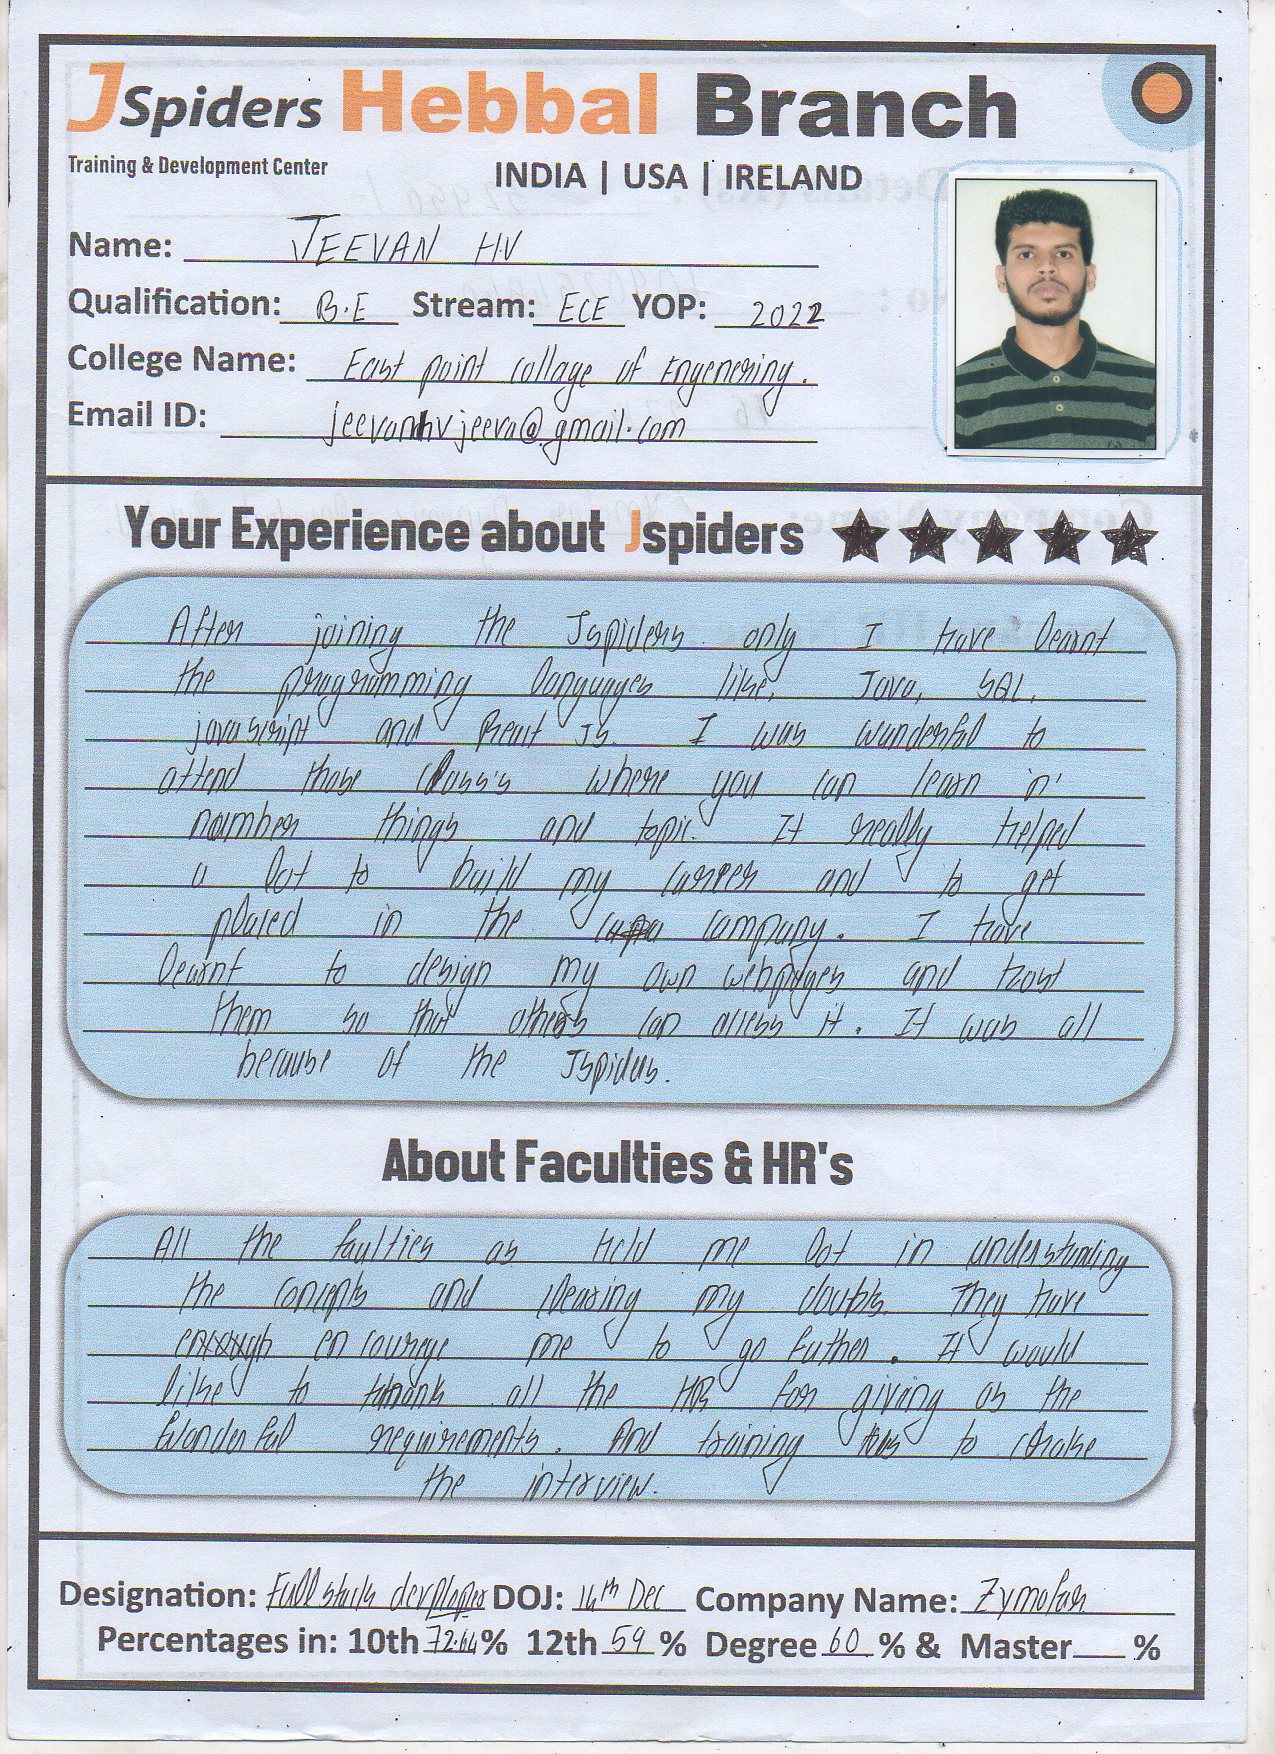 JSpiders Hebbal Branch
Training & Development Center
INDIA | USA | IRELAND
Name: JEEVAN H.V
Qualification: B.E Stream: ECE YOP: 2022
College Name: East point collage of Engenering.
Email ID: jeevanhvjeeva@gmail.com
Your Experience about Jspiders
After joining the Jspiders only I have learnt
the programming languages like, Java, SQL,
javascript and React Js. I was wunderful to
attend those class's where you can learn in'
number things and topic. It really helped
a lot to build my carrer and to get
placed in the company. I have
learnt to design my own webpages and host
them so that others can access it. It was all
because of the Jspiders.
About Faculties & HR's
All the faulties as held me lot in understanding
the concepts and clearing my doubts. They have
encourege me to go futher. It would
like to thank all the HR for giving as the
wonderful requirements. And training to
the interview.
Designation: Full stack developer DOJ: 14th Dec Company Name:
Percentages in: 10th 72.64% 12th 59 % Degree 60 % & Master %